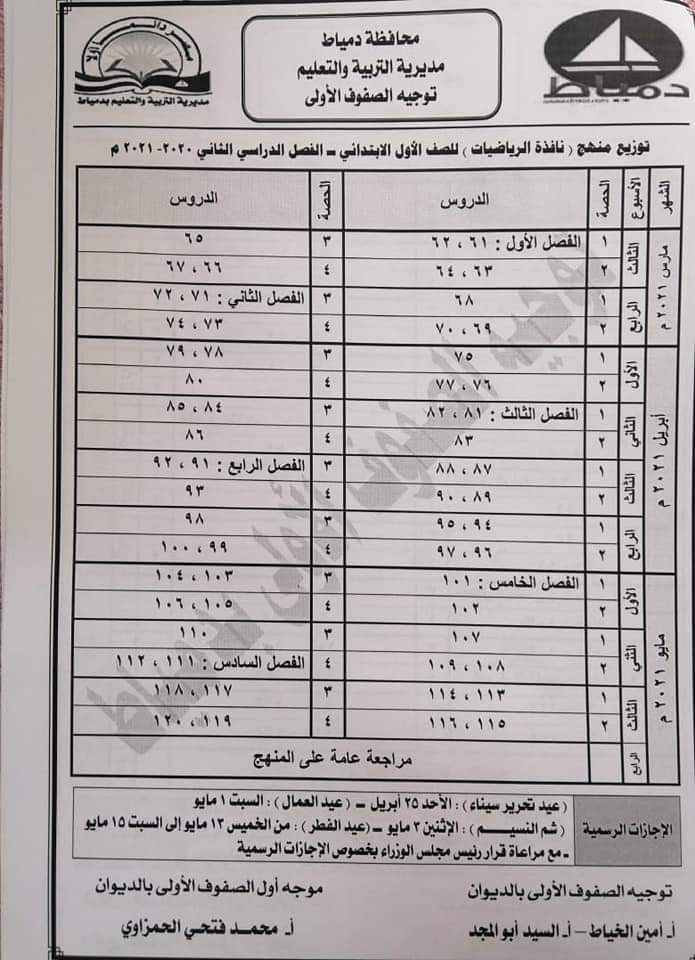 بمصر دائماً أولاً
مديرية التربية والتعليم بدمياط
محافظة دمياط
مديرية التربية والتعليم
توجيه الصفوف الأولى
دمياط
توزيع منهج ( نافذة الرياضيات ) للصف الأول الابتدائي ــ الفصل الدراسي الثاني ٢٠٢٠- ٢٠٢١ م
الشهر الأسبوع الحصة الدروس الحصة الدروس
مارس ٢٠٢١ م الثالث ١ الفصل الأول : ٦١ ، ٦٢ ٣ ٦٥
٢ ٦٣ ، ٦٤ ٤ ٦٦ ، ٦٧
الرابع ١ ٦٨ ٣ الفصل الثاني : ٧١ ، ٧٢
٢ ٦٩ ، ٧٠ ٤ ٧٣ ، ٧٤
أبريل ٢٠٢١ م الأول ١ ٧٥ ٣ ٧٨ ، ٧٩
٢ ٧٦ ، ٧٧ ٤ ٨٠
الثاني ١ الفصل الثالث : ٨١ ، ٨٢ ٣ ٨٤ ، ٨٥
٢ ٨٣ ٤ ٨٦
الثالث ١ ٨٧ ، ٨٨ ٣ الفصل الرابع : ٩١ ، ٩٢
٢ ٨٩ ، ٩٠ ٤ ٩٣
الرابع ١ ٩٤ ، ٩٥ ٣ ٩٨
٢ ٩٦ ، ٩٧ ٤ ٩٩ ، ١٠٠
مايو ٢٠٢١ م الأول ١ الفصل الخامس : ١٠١ ٣ ١٠٣ ، ١٠٤
٢ ١٠٢ ٤ ١٠٥ ، ١٠٦
الثاني ١ ١٠٧ ٣ ١١٠
٢ ١٠٨ ، ١٠٩ ٤ الفصل السادس : ١١١ ، ١١٢
الثالث ١ ١١٣ ، ١١٤ ٣ ١١٧ ، ١١٨
٢ ١١٥ ، ١١٦ ٤ ١١٩ ، ١٢٠
الرابع مراجعة عامة على المنهج
توجيه الصفوف الأولى بدمياط
الإجازات الرسمية
( عيد تحرير سيناء ) : الأحد ٢٥ أبريل ــ ( عيد العمال ) : السبت ١ مايو
( شم النسيم ) : الإثنين ٣ مايو ــ ( عيد الفطر ) : من الخميس ١٣ مايو إلى السبت ١٥ مايو
ـ مع مراعاة قرار رئيس مجلس الوزراء بخصوص الإجازات الرسمية
توجيه الصفوف الأولى بالديوان موجه أول الصفوف الأولى بالديوان
أـ أمين الخياط – أـ السيد أبو المجد أـ محمد فتحي الحمزاوي